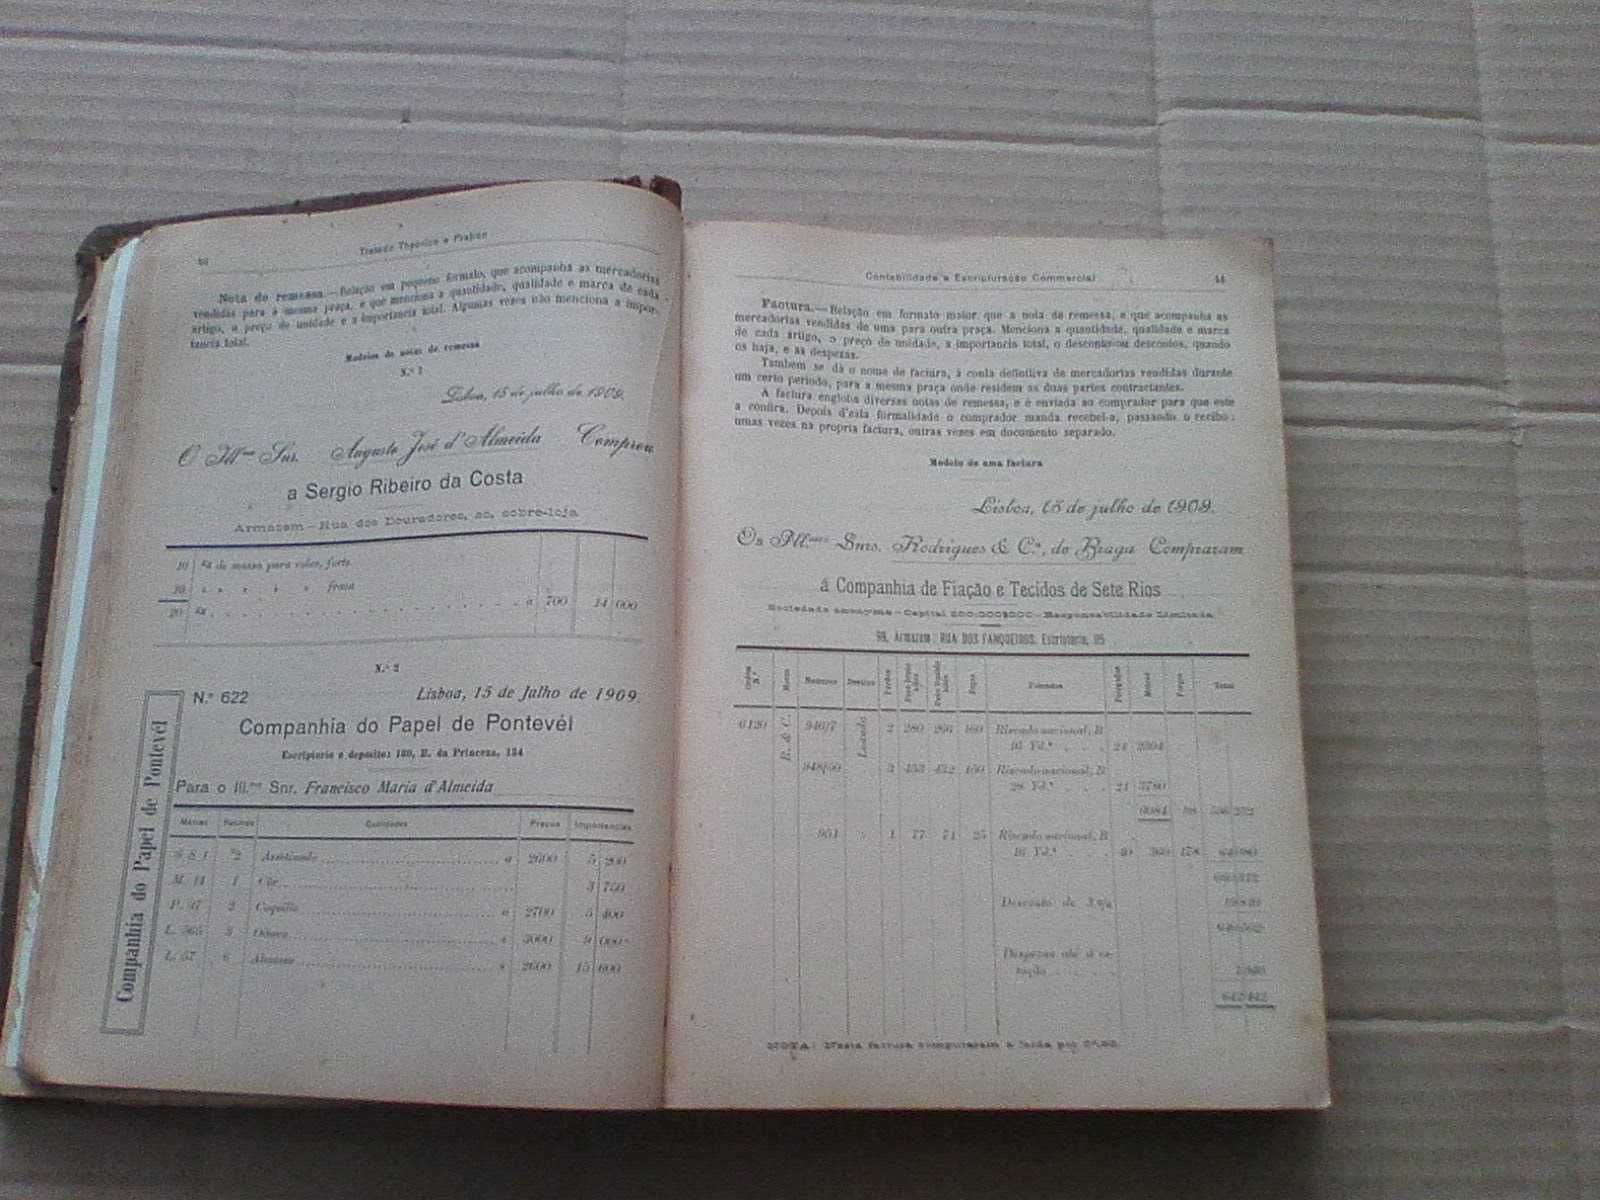 Tratado Theorico e Pratico
Nota de remessa.—Relação em pequeno formato, que acompanha as mercadorias
vendidas para a mesma praça, e que menciona a quantidade, qualidade e marca de cada
artigo, o preço da unidade e a importancia total. Algumas vezes não menciona a impor-
tancia total.
Modelos de notas de remessa
N.º 1
Lisboa, 15 de julho de 1909.
O Ill.mo Snr. Augusto José d'Almeida Comprou
a Sergio Ribeiro da Costa
Armazem—Rua dos Douradores, sobre-loja
10 kg de massa para rolos, forte
10 » » » » » fraca
20 kg a 700 14 000
N.º 2
N.º 622 Lisboa, 15 de Julho de 1909
Companhia do Papel de Pontevél
Companhia do Papel de Pontevél
Escriptorio e deposito: 180, R. da Princeza, 184
Para o Ill.mo Snr. Francisco Maria d'Almeida
Marcas Resmas Qualidades Preços Importancias
2 Assetinado a 2600 5 200
M. 14 1 Côr 3 750
P. 37 2 a 2700 5 400
L. 565 3 a 3000 9 000
L. 57 6 Almasso a 2600 15 600
Contabilidade e Escripturação Commercial
Factura.—Relação em formato maior que a nota de remessa, e que acompanha as
mercadorias vendidas de uma para outra praça. Menciona a quantidade, qualidade e marca
de cada artigo, o preço da unidade, a importancia total, o desconto ou descontos, quando
os haja, e as despezas.
Tambem se dá o nome de factura, á conta definitiva de mercadorias vendidas durante
um certo periodo, para a mesma praça onde residem as duas partes contractantes.
A factura engloba diversas notas de remessa, e é enviada ao comprador para que este
a confira. Depois d'esta formalidade o comprador manda recebel-a, passando o recibo:
umas vezes na propria factura, outras vezes em documento separado.
Modelo de uma factura
Lisboa, 15 de julho de 1909.
Os Ill.mos Snrs. Rodrigues & C.ª, de Braga Compraram
á Companhia de Fiação e Tecidos de Sete Rios
Sociedade anonyma—Capital 200:000$000—Responsabilidade limitada
99, Armazem: RUA DOS FANQUEIROS. Escriptorio, 95
Ordem N.º Marca Numeros Destino Fardos Peças Fazendas Metros Total
6120 R. & C. 946/7 2 280 266 160 Riscado nacional, B
16 Yd.ª 24 2304
3 453 432 150 Riscado nacional, B
28 Yd.ª 24 3780
951 » 1 77 71 25 Riscado nacional, B
16 Yd.ª 40 360
Desconto de 3 %
Despezas até á es-
tação
NOTA: Nesta factura computaram a jarda por